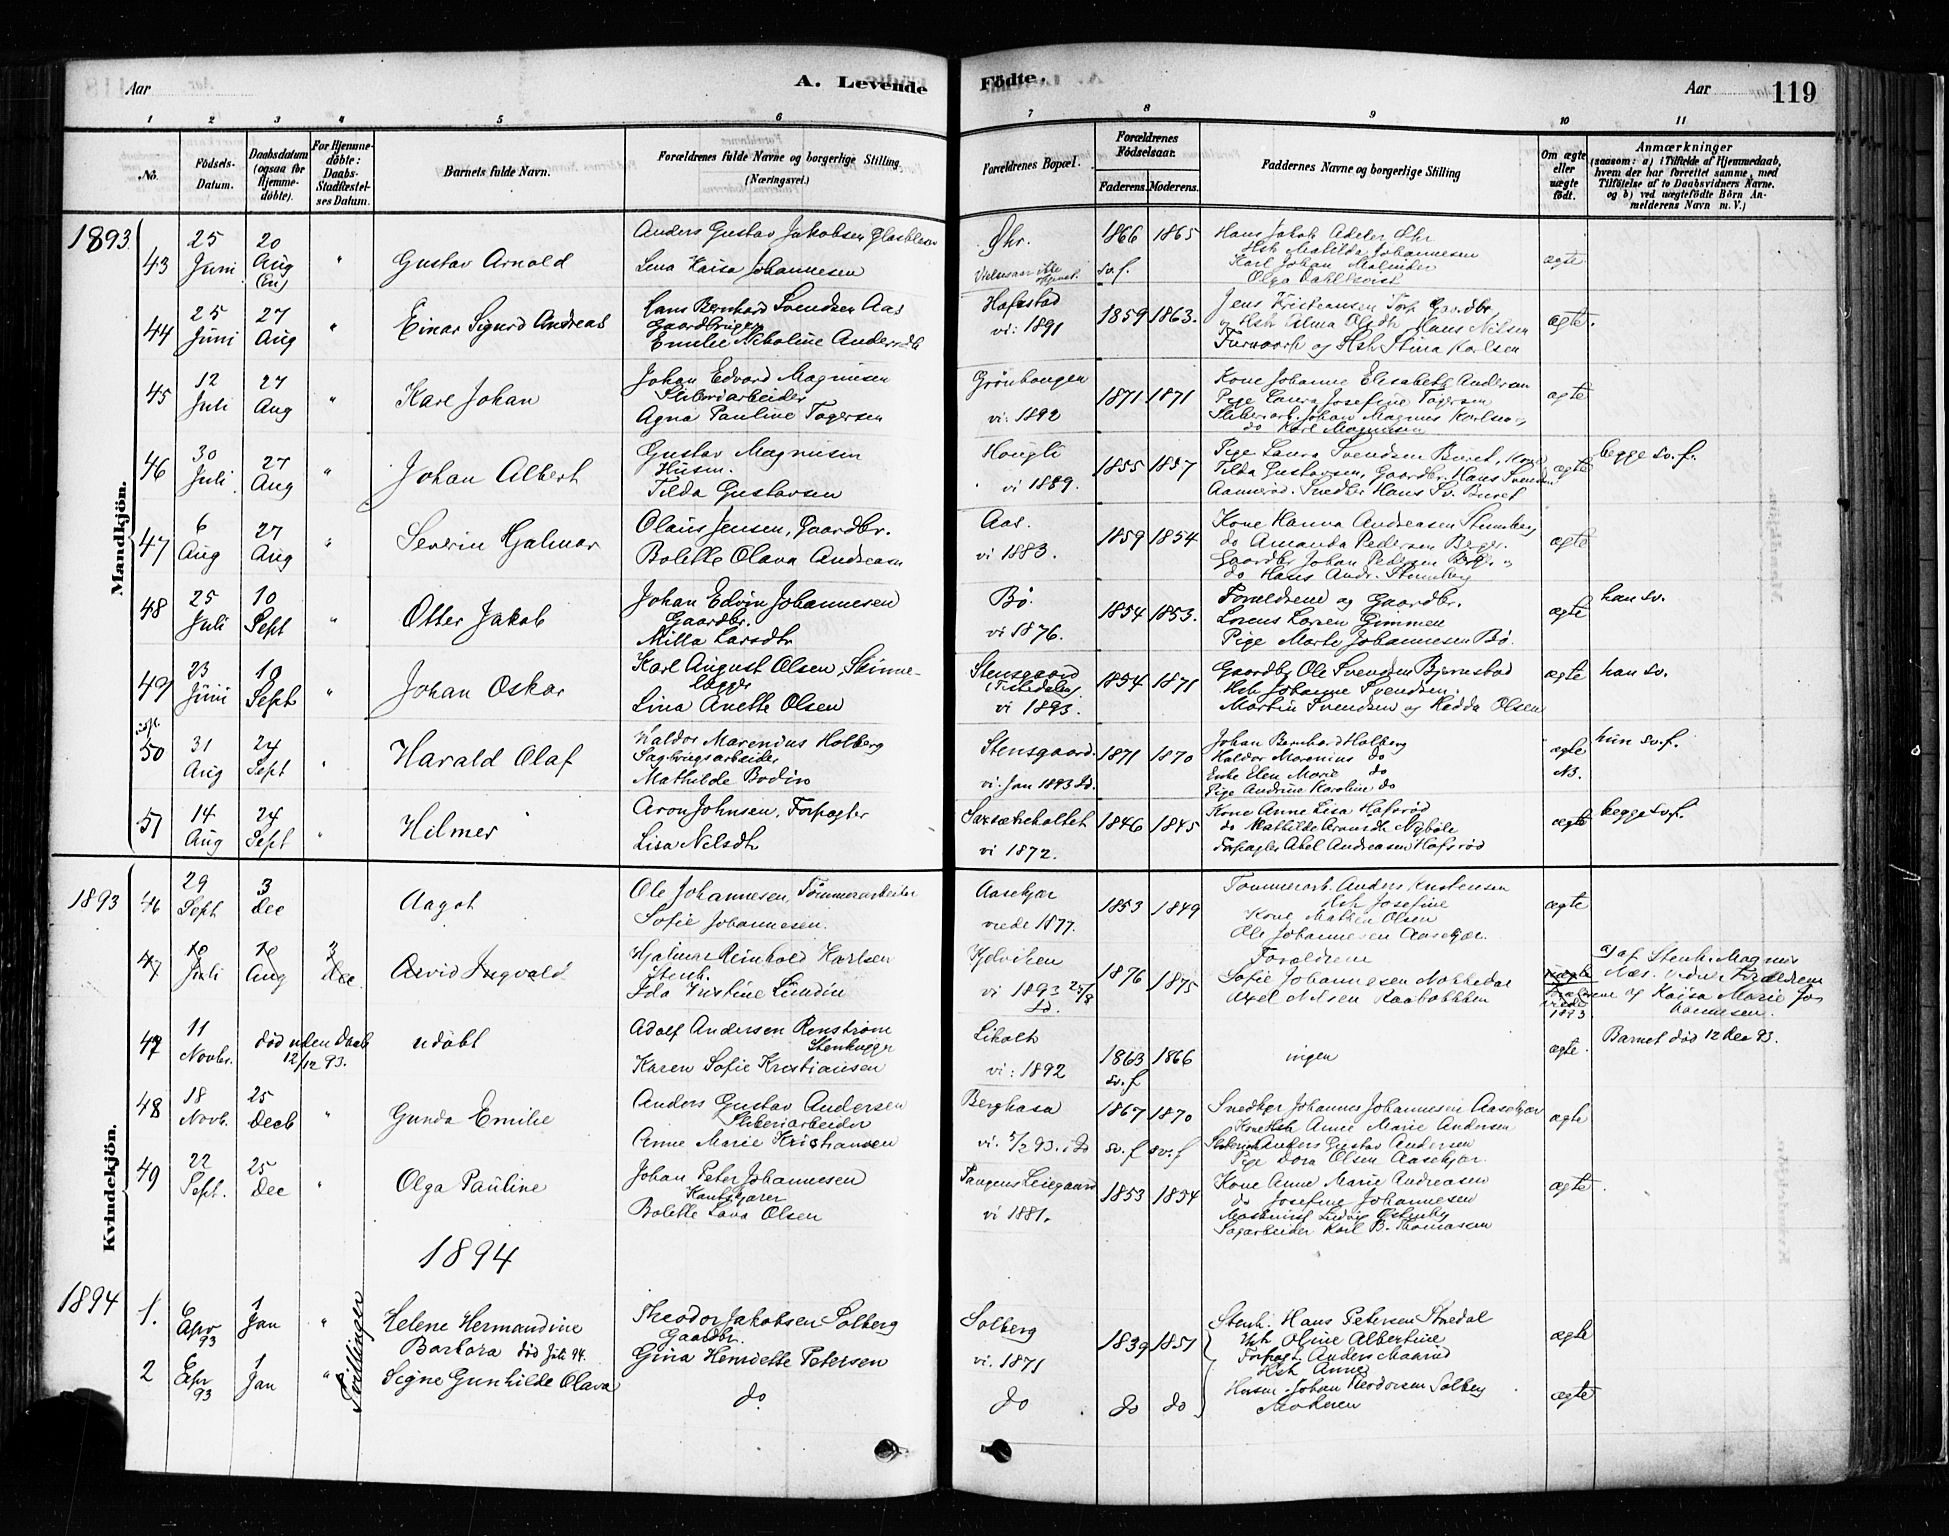 Aar
A. Levende
Födte.
Aar
119
1 2 3 4 5 6 7 8 9 10 11
No.
Födsels-Datum.
Daabsdatum (ogsaa for Hjemme-döbte).
For Hjemme-döbte: Daabs-Stadfæstel-ses Datum.
Barnets fulde Navn.
Forældrenes fulde Navne og borgerlige Stilling
(Næringsvei.)
Forældrenes Bopæl.
Forældrenes Födselsaar.
Faderens. Moderens.
Faddernes Navne og borgerlige Stilling
Om ægte eller uægte født.
Anmærkninger
(saasom: a) i Tilfælde af Hjemmedaab, hvem der har forrettet samme, med Tilföielse af to Daabsvidners Navne. og b) ved uægtefödte Börn An-melderens Navn m. V.)
Mandkjön.
1893
43 25 Juni 20 Aug " Gustav Arnold
Anders Gustav Jakobsen Glasblæser
Lena Kaisa Johannesen
Øhr.
1866 1865 sv.f.
Hans Jakob Adeler Øhr
Hst Matilda Johannesen
Karl Johan Malmider
Olga Dahlkvist
ægte
44 25 Juni 27 Aug " Einar Sigurd Andreas
Hans Bernhard Svendsen Aas
Gaardbruger
Emilie Nikoline Andersdt
Hafstad
vi: 1891
1859 1863.
Jens Kristiansen Torp Gaardbr.
og Hst Alma Olsdt Hans Nilsen
og Hst Stina Karlsen
ægte.
45 12 Juli 27 Aug " Karl Johan
Johan Edvard Magnusen
Sliberiarbeider
Agna Pauline Tagersen
Grønhaugen
vi: 1892
1871 1871
Kone Johanne Elisabeth Andersen
Pige Laura Josefine Tagersen
Sliberiarb. Johan Magnus Karlsen
do Karl Magnusen
ægte
46 30 Juli 27 Aug " Johan Albert
Gustav Magnusen
Husm.
Tilda Gustavsen
Hougli
vi 1889.
1855 1857
Pige Laura Svendsen Buret, Kone
Tilda Gustavsen, Gaardbr. Hans Svendsen
Aannerød. Snedker Hans Sv. Buret
ægte
begge sv.f.
47 6 Aug 27 Aug " Severin Hjalmar
Olaus Jensen, Gaardbr.
Bolette Olava Andreasen
Aas.
vi 1883.
1859 1854
Kone Hanna Andreasen Stumberg
do Amanda Pedersen Berger.
Gaardbr Johan Pedersen Berg. og
do Hans Andr. Stumberg
ægte
48 25 Juli 10 Sept " Otter Jakob
Johan Edvin Johannesen
Gaardbr.
Milla Larsdtr
Bø.
vi 1876.
1854 1853.
Forældrene og Gaardbr.
Lorens Larsen Gimmen
Pige Marte Johannesen Bø.
ægte
han sv.
49 23 Juni 10 Sept " Johan Oskar
Karl August Olsen, Skinne-
lægger
Lina Anette Olsen
Stensgaard
(Tistedalen)
vi 1893.
1854 1871
Gaardbr Ole Svendsen Bjørnstad
Hst Johanne Svendsen.
Martin Svendsen og Hedda Olsen
ægte
han sv.
50 31 Aug 24 Sept " Harald Olaf
Haldor Marenius Holberg
Sagbrugsarbeider
Mathilde Bodin
Stensgaard.
vi. Jan 1893 Id.
1871 1870
Johan Bernhard Holberg
Haldor Marenius do
Enke Elen Marie do
Pige Andrine Karoline do
ægte
NB.
hun sv.f.
51 14 Aug 24 Sept " Hilmer
Aron Johnsen, Forpagter
Lisa Nilsdt
vi 1872.
1846 1845
Kone Anne Lisa Hafsrød
do Mathilde Aronsdt Nybøle
Forpagter Abel Andreasen Hafsrød
ægte
begge sv.f.
Kvindekjön.
1893
46 29 Sept 3 Dec Aagot
Ole Johannesen Tømmerarbeider
Sofie Johannesen.
Aasekjær
viede 1877.
1853 1849
Tømmerarb. Anders Kristensen
Hst Josefine
Kone Mathea Olsen
Ole Johannesen Aasekjær.
ægte
47 10 Juli 10 Aug 3 Dec Arvid Ingvald
Hjalmar Reinhold Karlsen
Stenh.
Ida Kristine Lundin
vi 1893 25/8
Id.
1876 1875
Forældrene
Sofie Johannesen Nokkedal
Axel Nilsen Raabækken
1893
a) af Stenh. Magnus
Næs. vidner Forældrene
og Kaisa Marie Jo-
hannesen.
47 11 Novbr. død uden Daab 12/12 93. udøbt
Adolf Andersen Renstrøm
Stenhugger
Karen Sofie Kristiansen
Liholt
vi: 1892
1863 1866
sv.f
ingen
ægte.
Barnet død 12 Dec 93.
48 18 Novb. 25 Decb " Gunda Emilie
Anders Gustav Andersen
Sliberiarbeider
Anne Marie Kristiansen
Berghasa
vi. 5/2 93. i Id
1867 1870
sv.f sv.f
Snedker Johannes Johannesen Aasekjær
Kone Hst Anne Marie Andersen
Sliberiarb Anders Gustav Andersen
Pige Dora Olsen Aasekjær.
ægte
49 22 Sept. 25 Dec " Olga Pauline
Johan Peter Johannesen
Kantskjærer
Bolette Lava Olsen
Tangens Leiegaard
vi 1881.
1853 1854
Kone Anne Marie Andreasen
do Josefine Johannesen
Maskinist Ludvig Østenby
Sagarbeider Karl B. Thomassen
ægte.
1894
1894
1. 6 Apr 93 1 Jan " Helene Hermandine
Barbara død Juli 94.
Theodor Jakobsen Solberg
Gaardbr.
Gina Henriette Petersen
Solberg
vi. 1871
1839 1851
Stenh. Hans Petersen Stredal
Hst Oline Albertine
Forpagt. Anders Maarud
Hst Anne
ægte
Tvillinger
2 6 Apr 93 1 Jan " Signe Gunhilde Olava
do
do
do do
Husm. Johan Teodorsen Solberg
Moderen
ægte